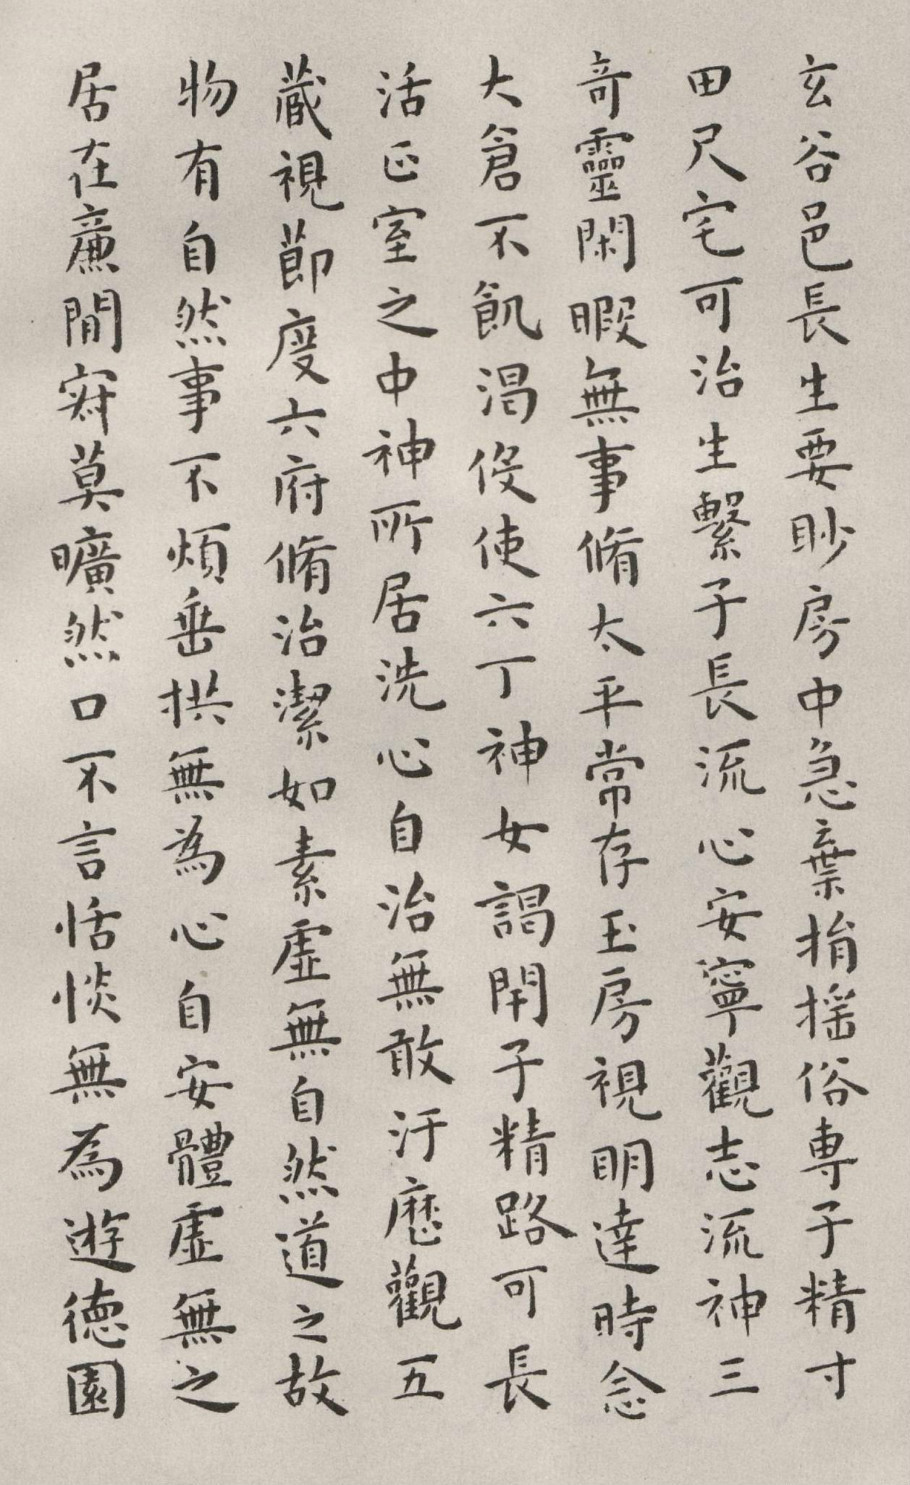 玄谷邑長生要眇房中急棄捐搖俗専子精寸
田尺宅可治生繫子長流心安寧觀志流神三
奇靈閑暇無事脩太平常存玉房視明達時念
大倉不飢渴役使六丁神女謁閇子精路可長
活正室之中神所居洗心自治無敢汙歷觀五
藏視節度六府脩治潔如素虛無自然道之故
物有自然事不煩垂拱無為心自安體虛無之
居在廉閒寂莫曠然口不言恬惔無為遊德園